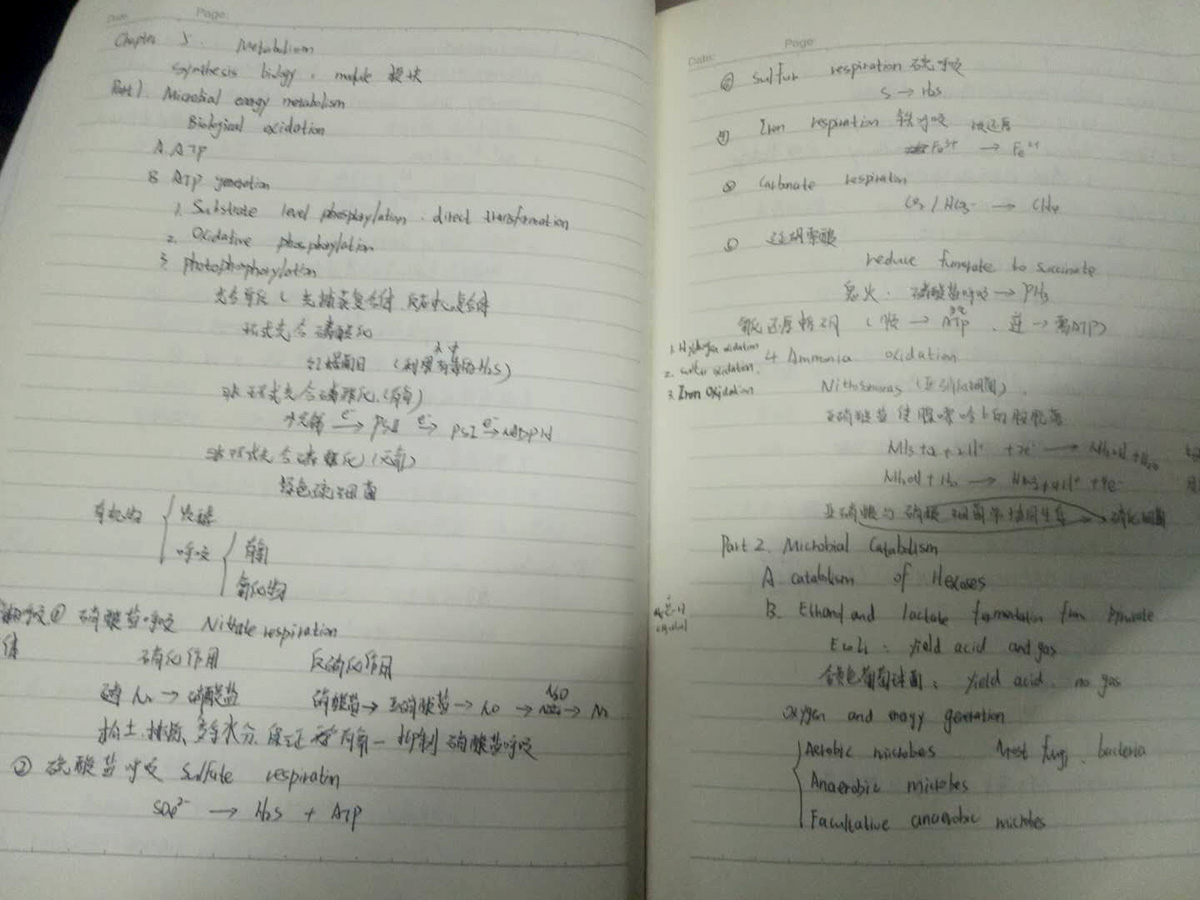 Page:
Chapter 5. Metabolism
Synthesis biology, module 模块
Part 1 Microbial energy metabolism
Biological oxidation
A. ATP
B. ATP generation
1. Substrate level phosphorylation : direct transformation
2. Oxidative phosphorylation
3. photophosphorylation
光合单位 ( 光捕获复合体, 反应中心复合体
环式光合磷酸化
红螺菌目 (利用 H2S)
非环式光合磷酸化 (有氧)
叶光解 e- → PSII e- → PSI e- → NADPH
非环式光合磷酸化 (无氧)
绿色硫细菌
有机物 { 发酵
呼吸 { 有氧
氧化物
呼吸 ① 硝酸盐呼吸 Nitrate respiration
硝化作用 反硝化作用
N2 → 硝酸盐 硝酸盐 → 亚硝酸盐 → NO → N2O → N2
松土, 排 水分, 保证 有氧 — 抑制硝酸盐呼吸
② 硫酸盐呼吸 Sulfate respiration
SO4²⁻ → H2S + ATP
Date: Page
③ Sulfur respiration 硫呼吸
S → H2S
④ Iron respiration 铁呼吸 铁还原
Fe³⁺ → Fe²⁺
⑤ Carbonate respiration
CO2 / HCO3⁻ → CH4
⑥ 延胡索酸
reduce fumerate to succinate
鬼火 : 磷酸盐呼吸 → PH3
氢还原 (顺 → 产能 ATP, 逆 → 需ATP)
1. Hydrogen oxidation
2. Sulfur oxidation.
3. Iron Oxidation
4 Ammonia oxidation
Nitrosomonas (亚硝化细菌)
亚硝酸盐使 上的
NH3 + O2 + 2H⁺ + 2e⁻ → NH2OH + H2O
NH2OH + H2O → HNO2 + 4H⁺ + 4e⁻
亚硝酸与硝酸细菌 → 硝化细菌
Part 2. Microbial Catabolism
A. catabolism of Hexoses
B. Ethanol and lactate fermentation from Pyruvate
E coli : yield acid and gas
金黄色葡萄球菌 : yield acid, no gas
oxygen and energy generation
{ Aerobic microbes Most fungi, bacteria
Anaerobic microbes
Facultative anaerobic microbes